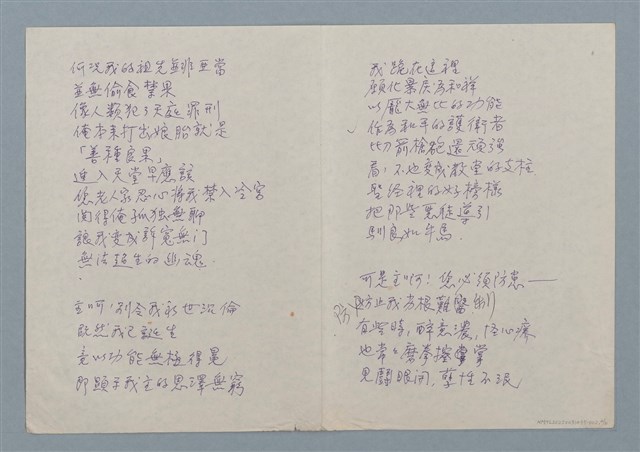 何況我的祖先並非亞當
並無偷食禁果
像人類犯了天庭罪刑
俺本來打出娘胎就是
「善種良果」
進入天堂早應該
您老人家忍心將我禁入冷宮
關得俺孤独無聊
讓我变成訴冤無门
無法超生的幽魂.
主呵!別令我永世沉倫
既然我已誕生
竟以功能無極得晃
即顯乎我主的恩澤無窮
我跪在這裡
願化暴戾為和祥
以龐大無比的功能
作為和平的護衛者
比刀箭槍砲還頑強
看,不也变成教堂的支柱
聖经裡的好榜樣
把那些惡徒導引
馴良如牛馬.
可是主呵!您必須防患——
防止我有根難醫
有些時,醉意濃,怪心癢
也常々磨拳擦掌
見鬪眼開,孽性不泯